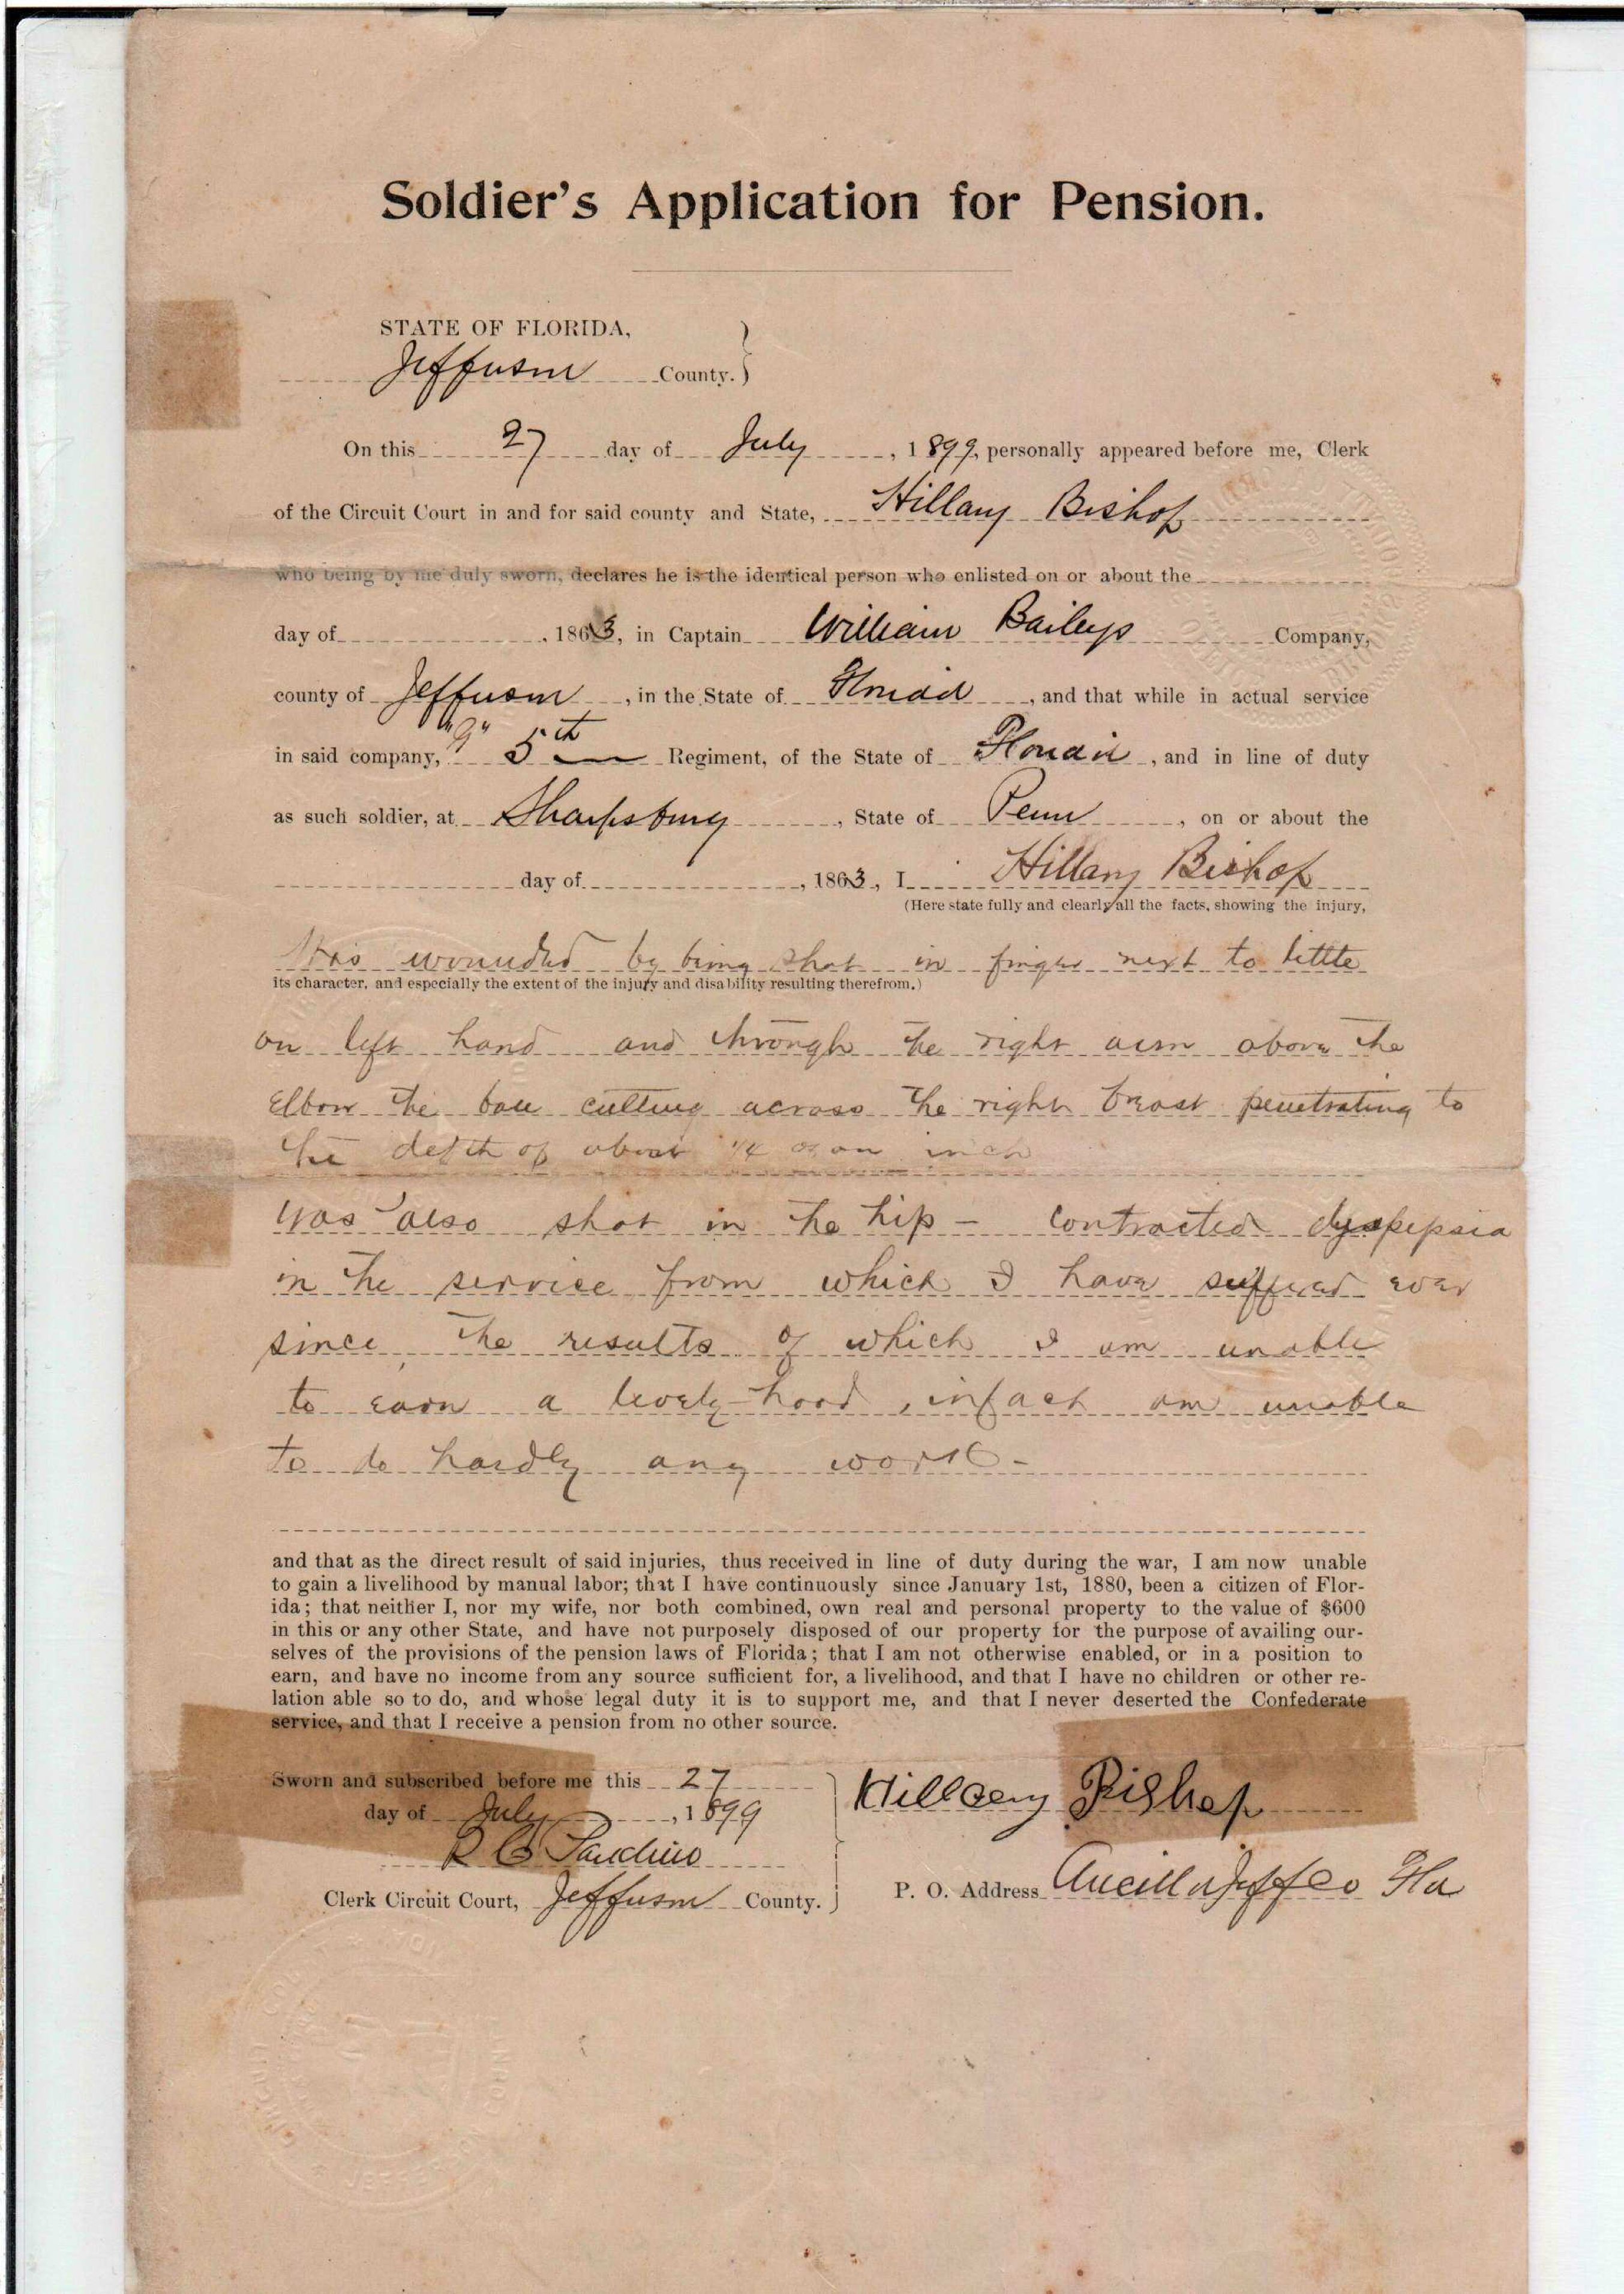 Soldier's Application for Pension.
STATE OF FLORIDA,
Jefferson County.
On this 27 day of July, 1899, personally appeared before me, Clerk
of the Circuit Court in and for said county and State, Hillary Bishop
who being by me duly sworn, declares he is the identical person who enlisted on or about the
day of , 1863, in Captain William Baileys Company,
county of Jefferson, in the State of Florida, and that while in actual service
in said company, "G" 5th Regiment, of the State of Florida, and in line of duty
as such soldier, at Sharpsburg, State of Penn, on or about the
day of , 1863, I Hillary Bishop
(Here state fully and clearly all the facts, showing the injury,
Was wounded by being shot in finger next to little
its character, and especially the extent of the injury and disability resulting therefrom.)
on left hand and through the right arm above the
Elbow the ball cutting across the right breast penetrating to
the depth of about 1/4 of an inch
Was also shot in the hip - contracted dyspepsia
in the service from which I have suffered ever
since, the results of which I am unable
to earn a lively-hood, infact am unable
to do hardly any work -
and that as the direct result of said injuries, thus received in line of duty during the war, I am now unable
to gain a livelihood by manual labor; that I have continuously since January 1st, 1880, been a citizen of Flor-
ida; that neither I, nor my wife, nor both combined, own real and personal property to the value of $600
in this or any other State, and have not purposely disposed of our property for the purpose of availing our-
selves of the provisions of the pension laws of Florida; that I am not otherwise enabled, or in a position to
earn, and have no income from any source sufficient for, a livelihood, and that I have no children or other re-
lation able so to do, and whose legal duty it is to support me, and that I never deserted the Confederate
service, and that I receive a pension from no other source.
Sworn and subscribed before me this 27
day of July, 1899
Hillary Bishop
R C
Clerk Circuit Court, Jefferson County.
P. O. Address Aucilla Jeff Co Fla